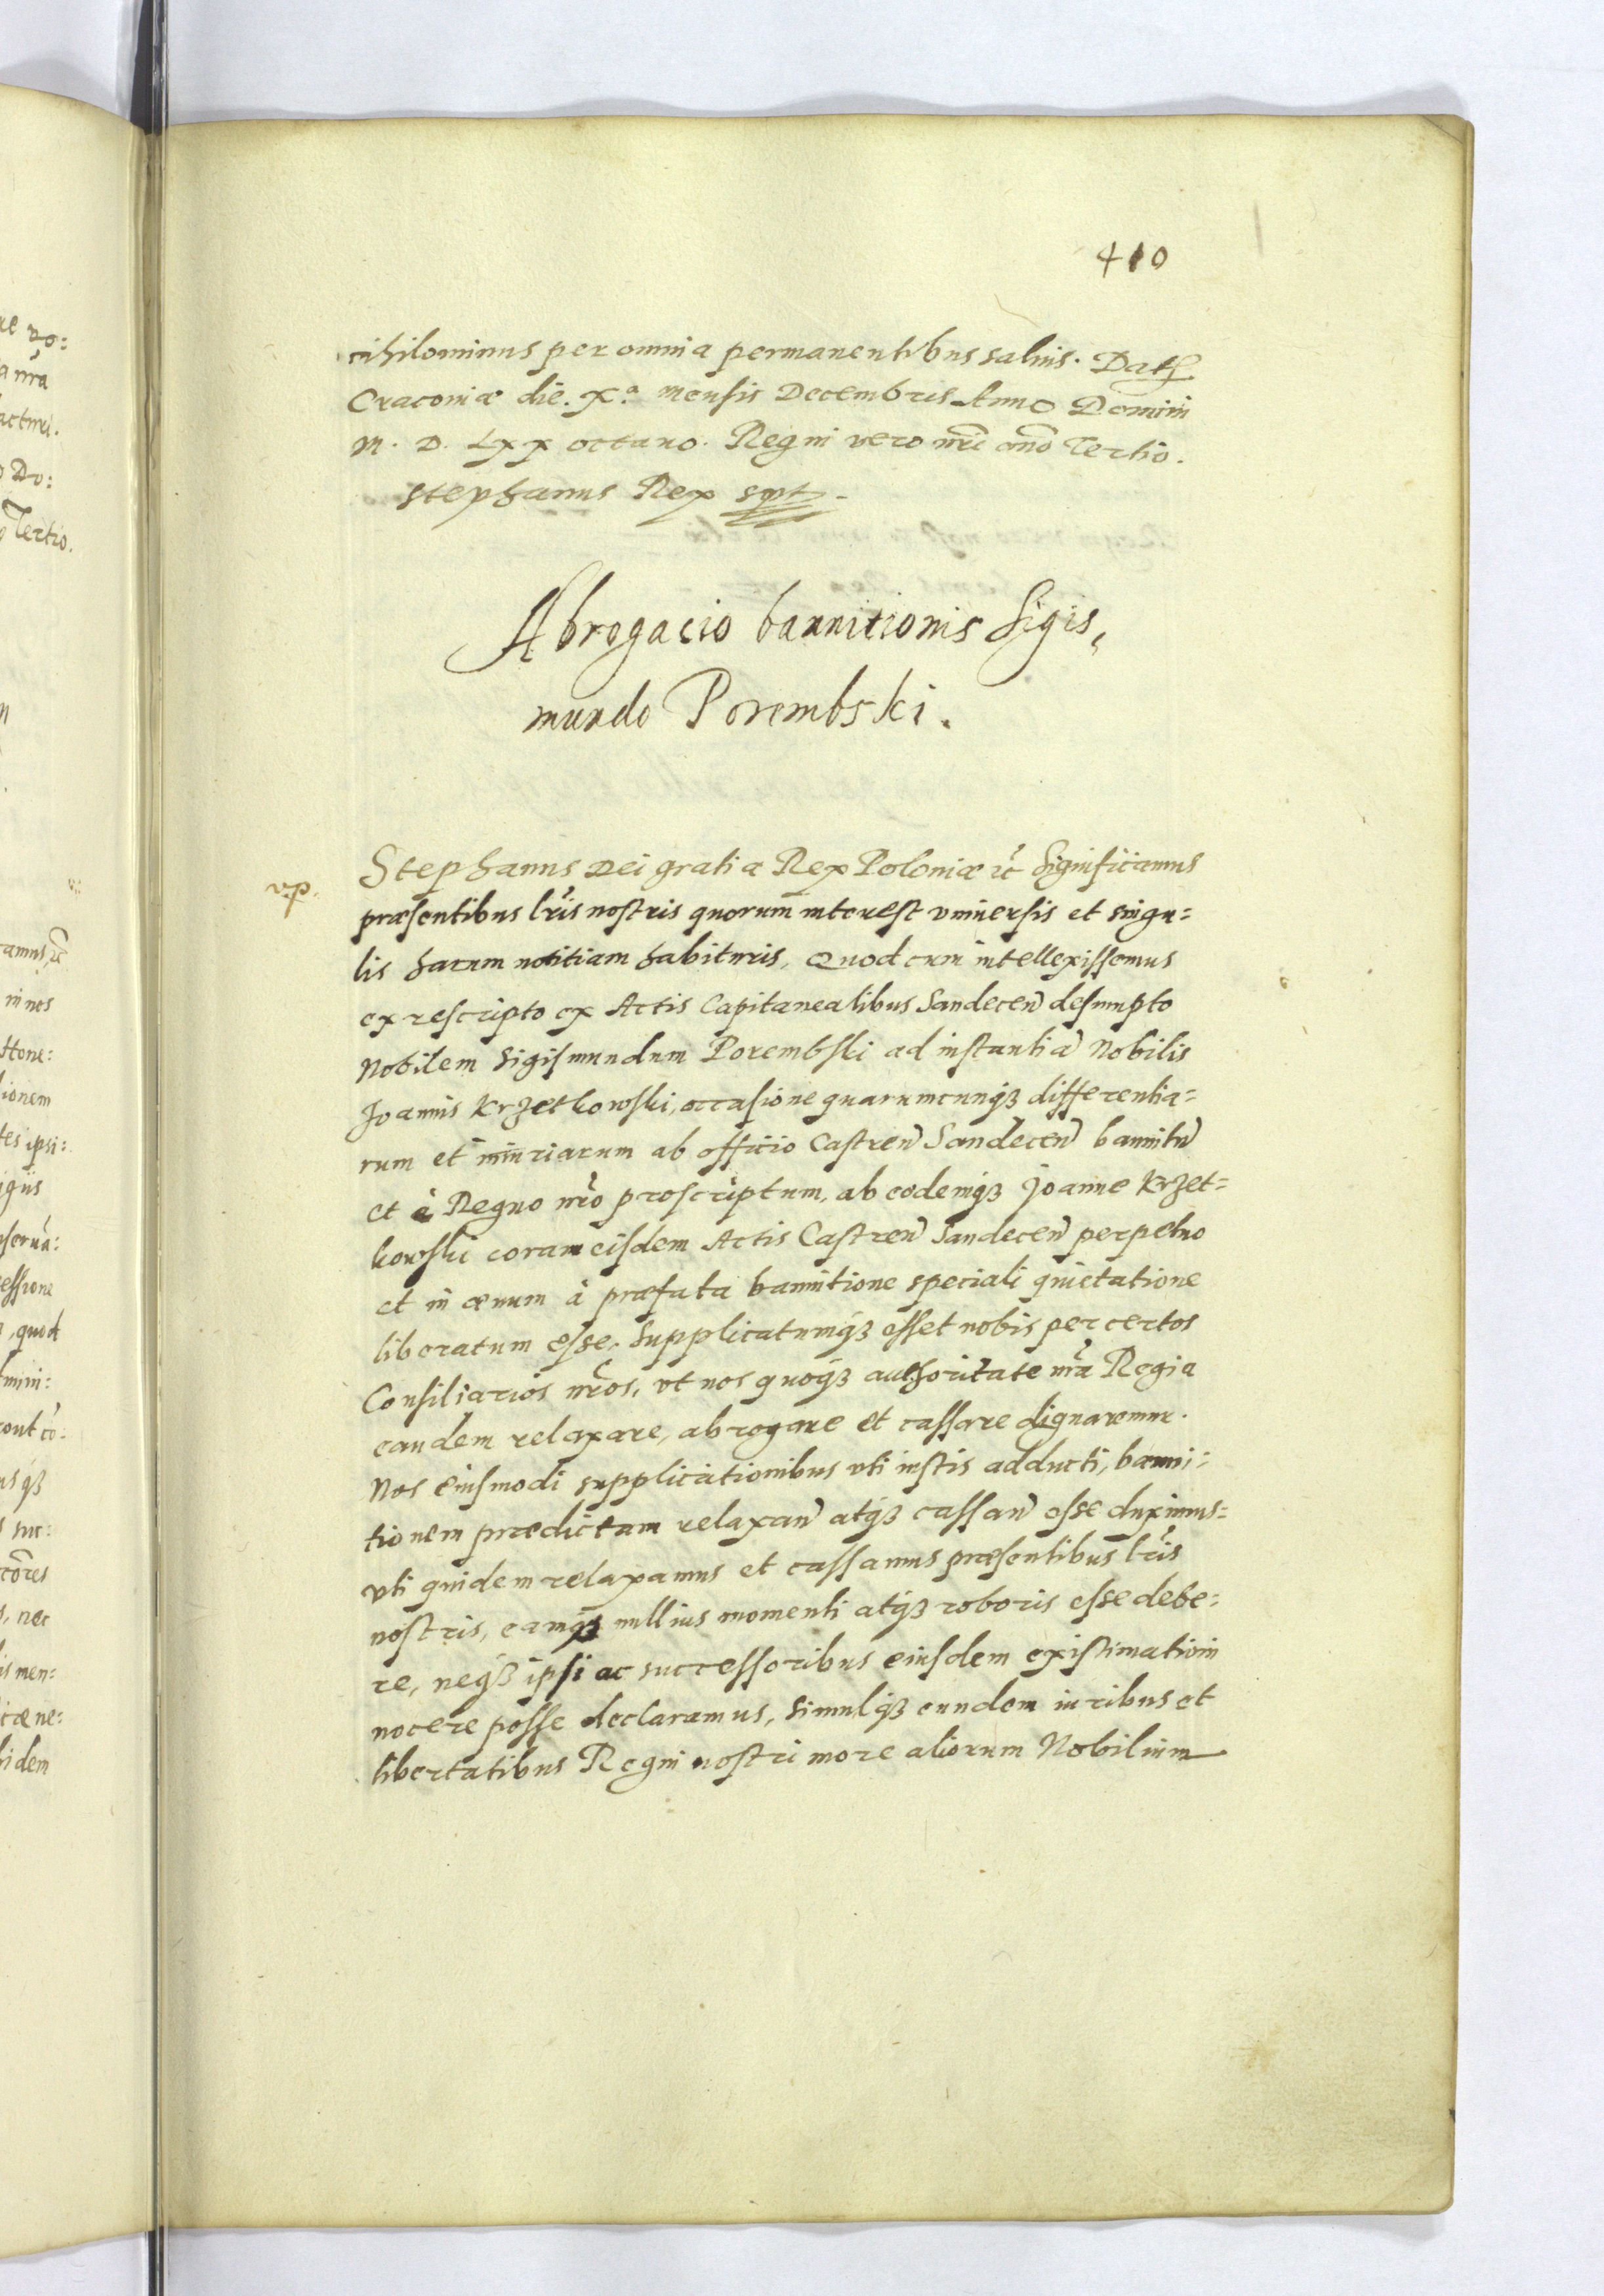 410
nihilominus per omnia permanentibus salvis. Dat
Craconiæ die. Xa. mensis Decembris Anno Domini
M. D. LXX octauo. Regni vero nri año Tertio.
Stephanus Rex sspt
Abrogacio bannitionis Sigis,
mundo Porembski.
vp.
Stephanus Dei gratia Rex Poloniæ rc Significamus
præsentibus lris nostris quorum interest vniuersis et singu=
lis harum notitiam habituris, Quod cum intellexissemus
ex rescripto ex Actis Capitanealibus Sandeceñ desumpto
Nobilem Sigismundum Porembski ad instantiã Nobilis
Joannis Krzetkowski, occasione quarumcunqȝ differentia=
rum et iniuriarum ab officio Castreñ Sandeceñ bannitũ
et è Regno nro proscriptum, ab eodemqȝ Joanne Krzet=
kowski coram eisdem Actis Castreñ Sandeceñ perpetuo
et in æuum à præfata bannitione speciali quietatione
liberatum esse, Supplicatumqȝ esset nobis per certos
Consiliarios nros, vt nos quoqȝ authoritate nra Regia
eandem relaxare, abrogare et cassare dignaremur.
Nos eiusmodi supplicationibus vti iustis adducti, banni=
tionem prædictam relaxañ atqȝ cassañ esse duximus=
vti quidem relaxamus et cassamus præsentibus lris
nostris, eamqȝ nullius momenti atqȝ roboris esse debe=
re, neqȝ ipsi ac successoribus eiusdem existimationi
nocere posse declaramus, Simulqȝ eundem iuribus et
libertatibus Regni nostri more aliorum Nobilium